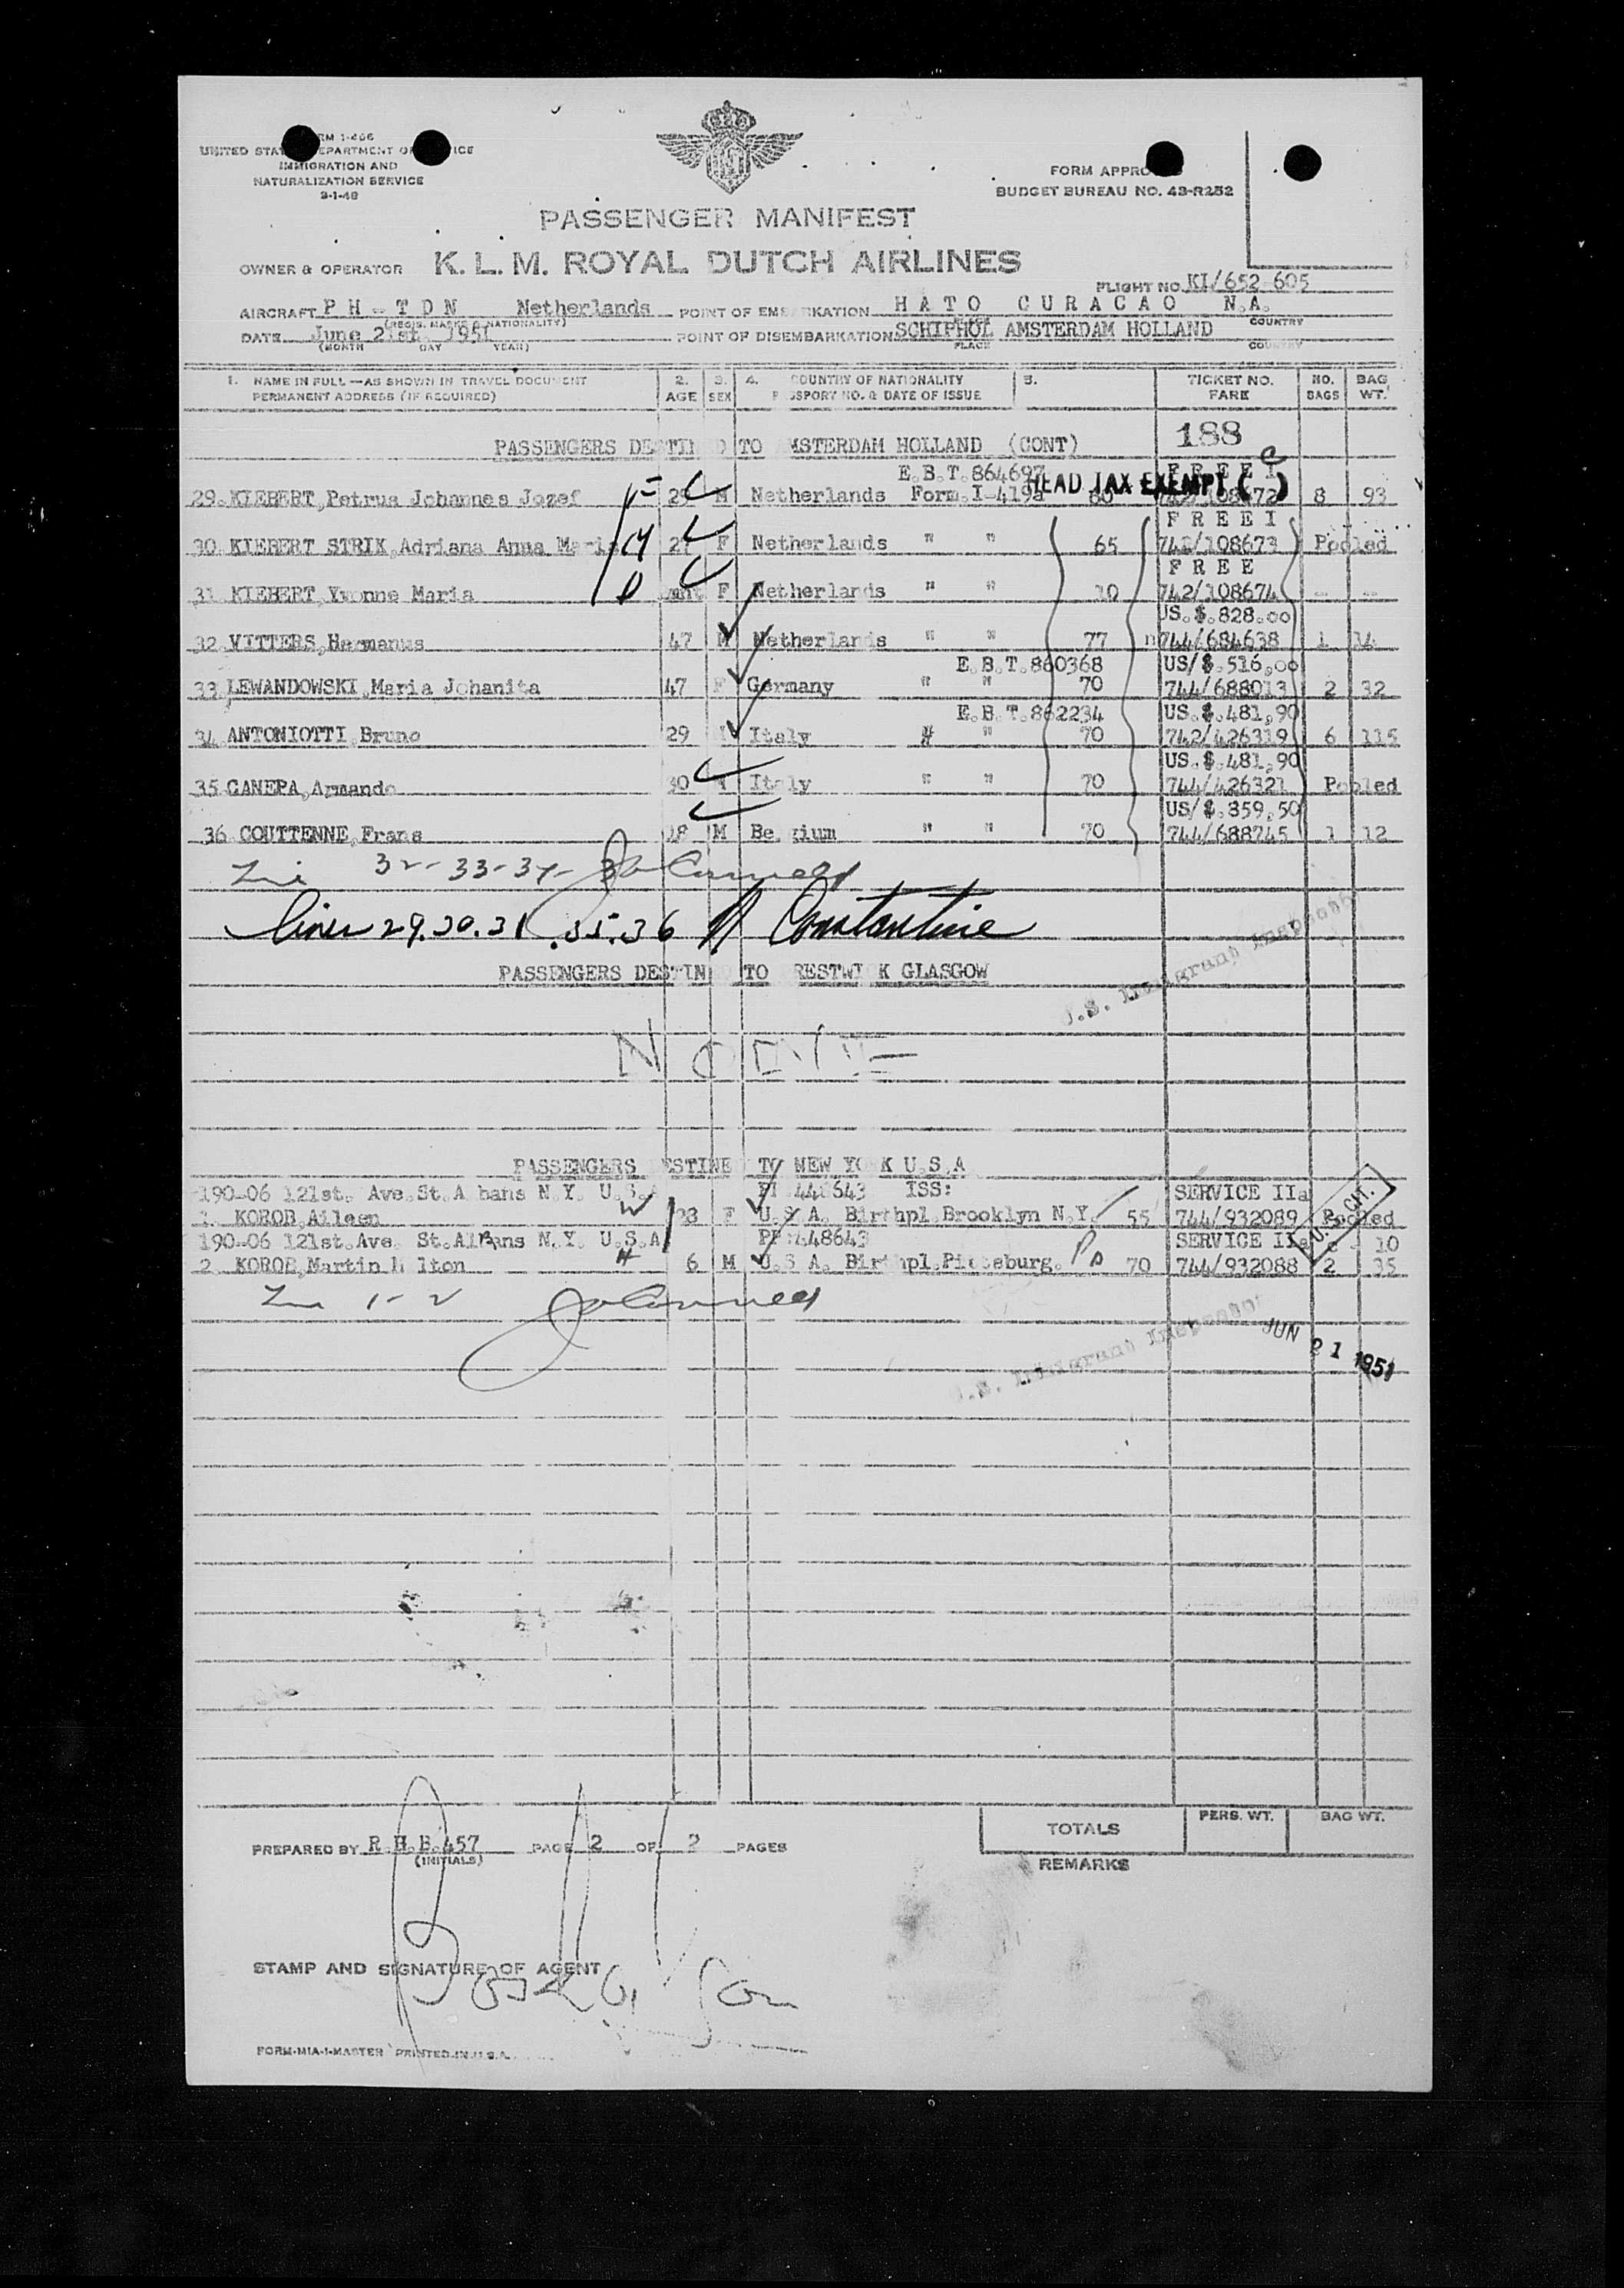 FORM I-466
UNITED STATES DEPARTMENT OF JUSTICE
IMMIGRATION AND
NATURALIZATION SERVICE
FORM APPROVED
BUDGET BUREAU NO. 43-R252
PASSENGER MANIFEST
OWNER & OPERATOR K.L.M. ROYAL DUTCH AIRLINES
FLIGHT NO. KL/652-605
AIRCRAFT PH-TDN Netherlands POINT OF EMBARKATION HATO CURACAO N.A.
(REGIS. MARKS & NATIONALITY) PLACE COUNTRY
DATE June 21st. 1951 POINT OF DISEMBARKATION SCHIPHOL AMSTERDAM HOLLAND
(MONTH DAY YEAR) PLACE COUNTRY
1. NAME IN FULL—AS SHOWN IN TRAVEL DOCUMENT 2. 3. 4. COUNTRY OF NATIONALITY 5. TICKET NO. NO. BAG
PERMANENT ADDRESS (IF REQUIRED) AGE SEX PASSPORT NO. & DATE OF ISSUE FARE BAGS WT.
188
PASSENGERS DESTINED TO AMSTERDAM HOLLAND (CONT)
E.B.T.864697 FREE
HEAD TAX EXEMPT ( )
29. KIEBERT, Petrus Johannes Jozef 29 M Netherlands Form.I-419a 80 742/108672 8 93
FREE I
30. KIEBERT STRIK, Adriana Anna Maria F Netherlands " " 65 742/108673 Pooled
FREE
31. KIEBERT, Yvonne Maria F Netherlands " " 10 742/108674 -- --
US.$.828.00
32. VITTERS, Hermanus 47 M Netherlands " " 77 744/684638 1 14
E.B.T.860368 US/$.516,00
33. LEWANDOWSKI, Maria Johanita 47 F Germany " " 70 744/688013 2 32
E.B.T.862234 US.$.481,90
34. ANTONIOTTI, Bruno 29 M Italy " " 70 742/426319 6 115
US.$.481,90
35. CANEPA, Armando 30 M Italy " " 70 744/426321 Pooled
US/$.359,50
36. COUTTENNE, Frans 18 M Belgium " " 70 744/688745 1 12
32-33-34-
lines 29.30.31.35.36 Constantine
U.S. Immigrant Inspector
PASSENGERS DESTINED TO PRESTWICK GLASGOW
NONE
PASSENGERS DESTINED TO NEW YORK U.S.A
190-06 121st. Ave. St. Albans N.Y. U.S.A PP 448643 ISS: SERVICE IIa
1. KOROB, Aileen F U.S.A. Birthpl. Brooklyn N.Y. 55 744/932089 Pooled
190-06 121st. Ave. St. Albans N.Y. U.S.A PP:448643 SERVICE IIa 10
2 KOROB, Martin Milton 6 M U.S.A. Birthpl. Pitteburg. Pa 70 744/932088 2 35
U.S. CIT.
1-2
U.S. Immigrant Inspector JUN 21 1951
TOTALS PERS. WT. BAG WT.
PREPARED BY R.H.B.457 PAGE 2 OF 2 PAGES
(INITIALS)
REMARKS
STAMP AND SIGNATURE OF AGENT
FORM-MIA-1-MASTER PRINTED IN U.S.A.